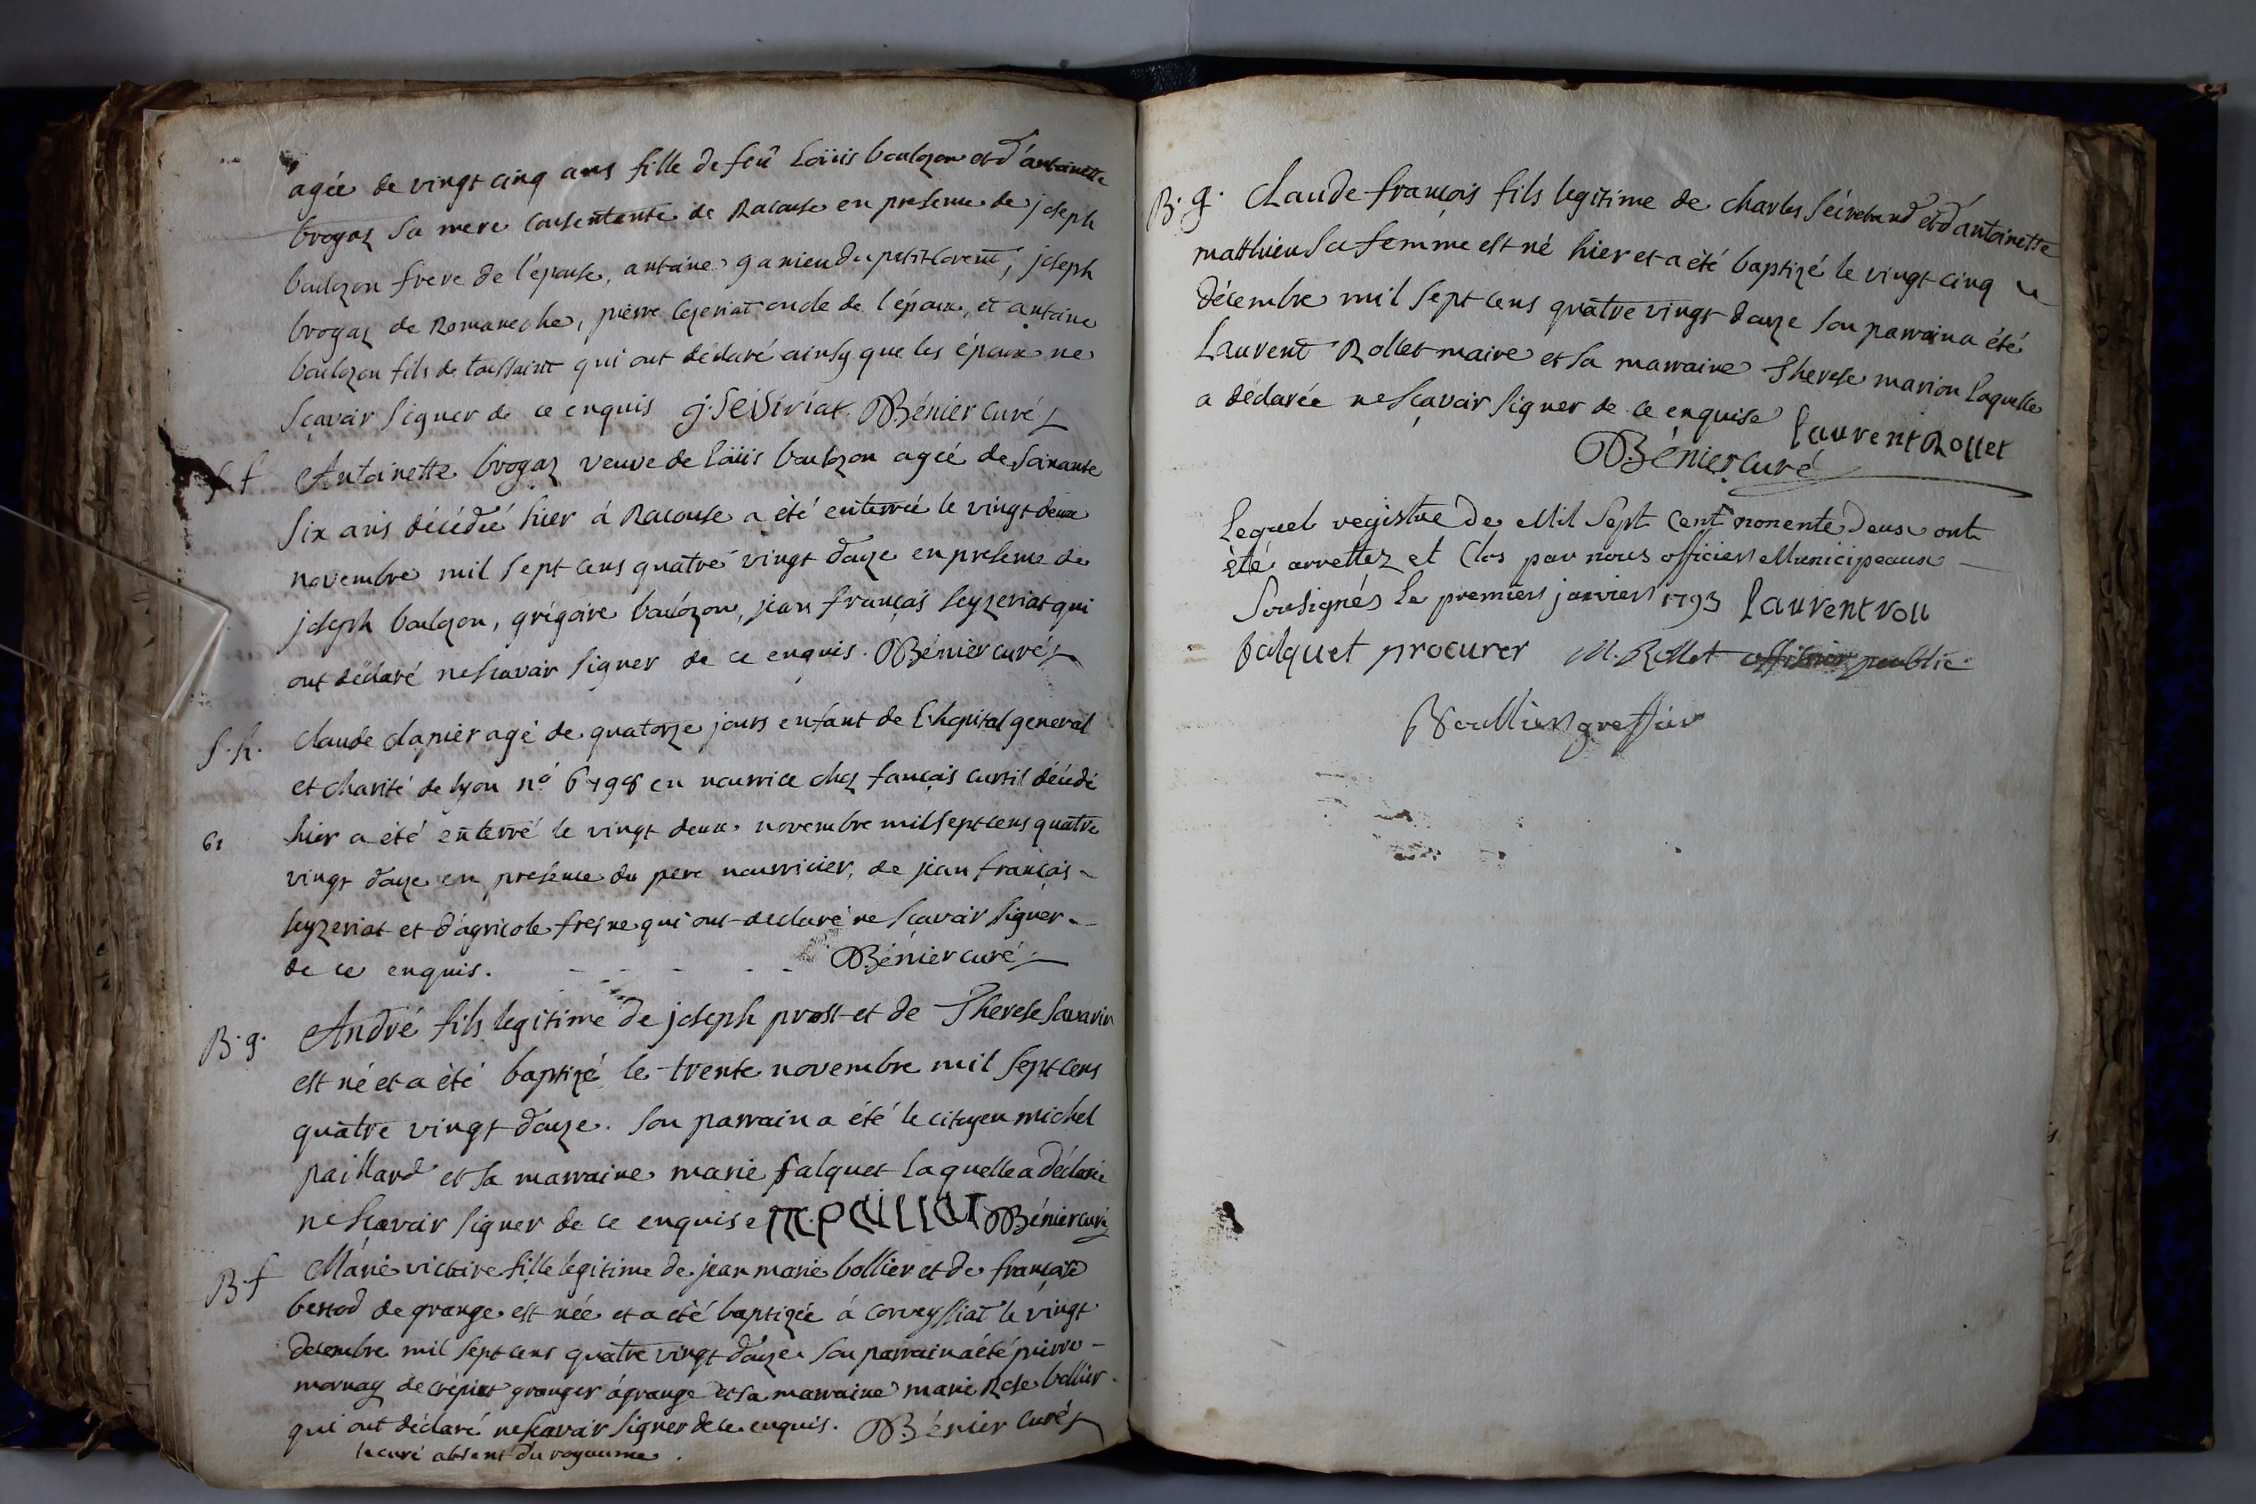 agée de vingt cinq ans fille de feû Loüis boulozon et d'antoinette
brogaz sa mere consentante de Racouse en presence de joseph
boulozon frere de l'épouse, antoine ganieu du petit corent, joseph
brogaz de Romaneche, pierre lezeriat oncle de l'époux, et antoine
boulozon fils de toussaint qui ont déclaré ainsy que les époux ne
sçavoir signer de ce enquis j. seisiriat. Bénier curé
S. f Antoinette brogaz veuve de Loüis boulozon agée de soixante
six ans décédée hier á Racouse a été enterrée le vingt deux
novembre mil sept cens quatre vingt douze en presence de
joseph boulozon, grégoire boulozon, jean françois seyzeriat qui
ont déclaré ne scavoir signer de ce enquis. Bénier curé
S. h. claude clapier agé de quatorze jours enfant de L'hopital general
et charité de lyon n.º 6798 en nourrice chez fançois curtil décédé
61 hier a été enterré le vingt deux novembre mil sept cens quatre
vingt douze en presence du pere nourricier, de jean françois
seyzeriat et d'agricole fresne qui ont declaré ne scavoir signer
de ce enquis. Bénier curé
B. g. André fils legitime de joseph prost et de Therese Savarin
est né et a été baptizé le trente novembre mil sept cens
quatre vingt douze. son parrain a été le citoyen michel
paillard et sa marraine marie falquet laquelle a déclaré
ne scavoir signer de ce enquise m. paillar Bénier curé
B. f Marie victoire fille legitime de jean marie bollier et de françoise
bertod de grange est née et a été baptizée á corveyssiat le vingt
decembre mil sept cens quatre vingt douze son parrain a été pierre
mornay de crépiat granger á grange et sa marraine marie Rose bollier
qui ont déclaré ne scavoir signer de ce enquis. Bénier curé
le curé absent du royaume.
B. g. Claude françois fils legitime de charles et d'antoinette
matthieu sa femme est né hier et a été baptizé le vingt cinq
décembre mil sept cens quatre vingt douze son parrain a été
Laurent Rollet maire et sa marraine Therese marion laquelle
a déclarée ne sçavoir signer de ce enquise Laurent Rollet
Bénier curé
Lequel registre de Mil Sept Cent nonente Deux ont
été arrettez et Clos par nous officiers Municipeaux
Sousignés Le premiers janviers 1793 Laurent roll
falquet procurer M. Rollet officier public
Boullier greffier